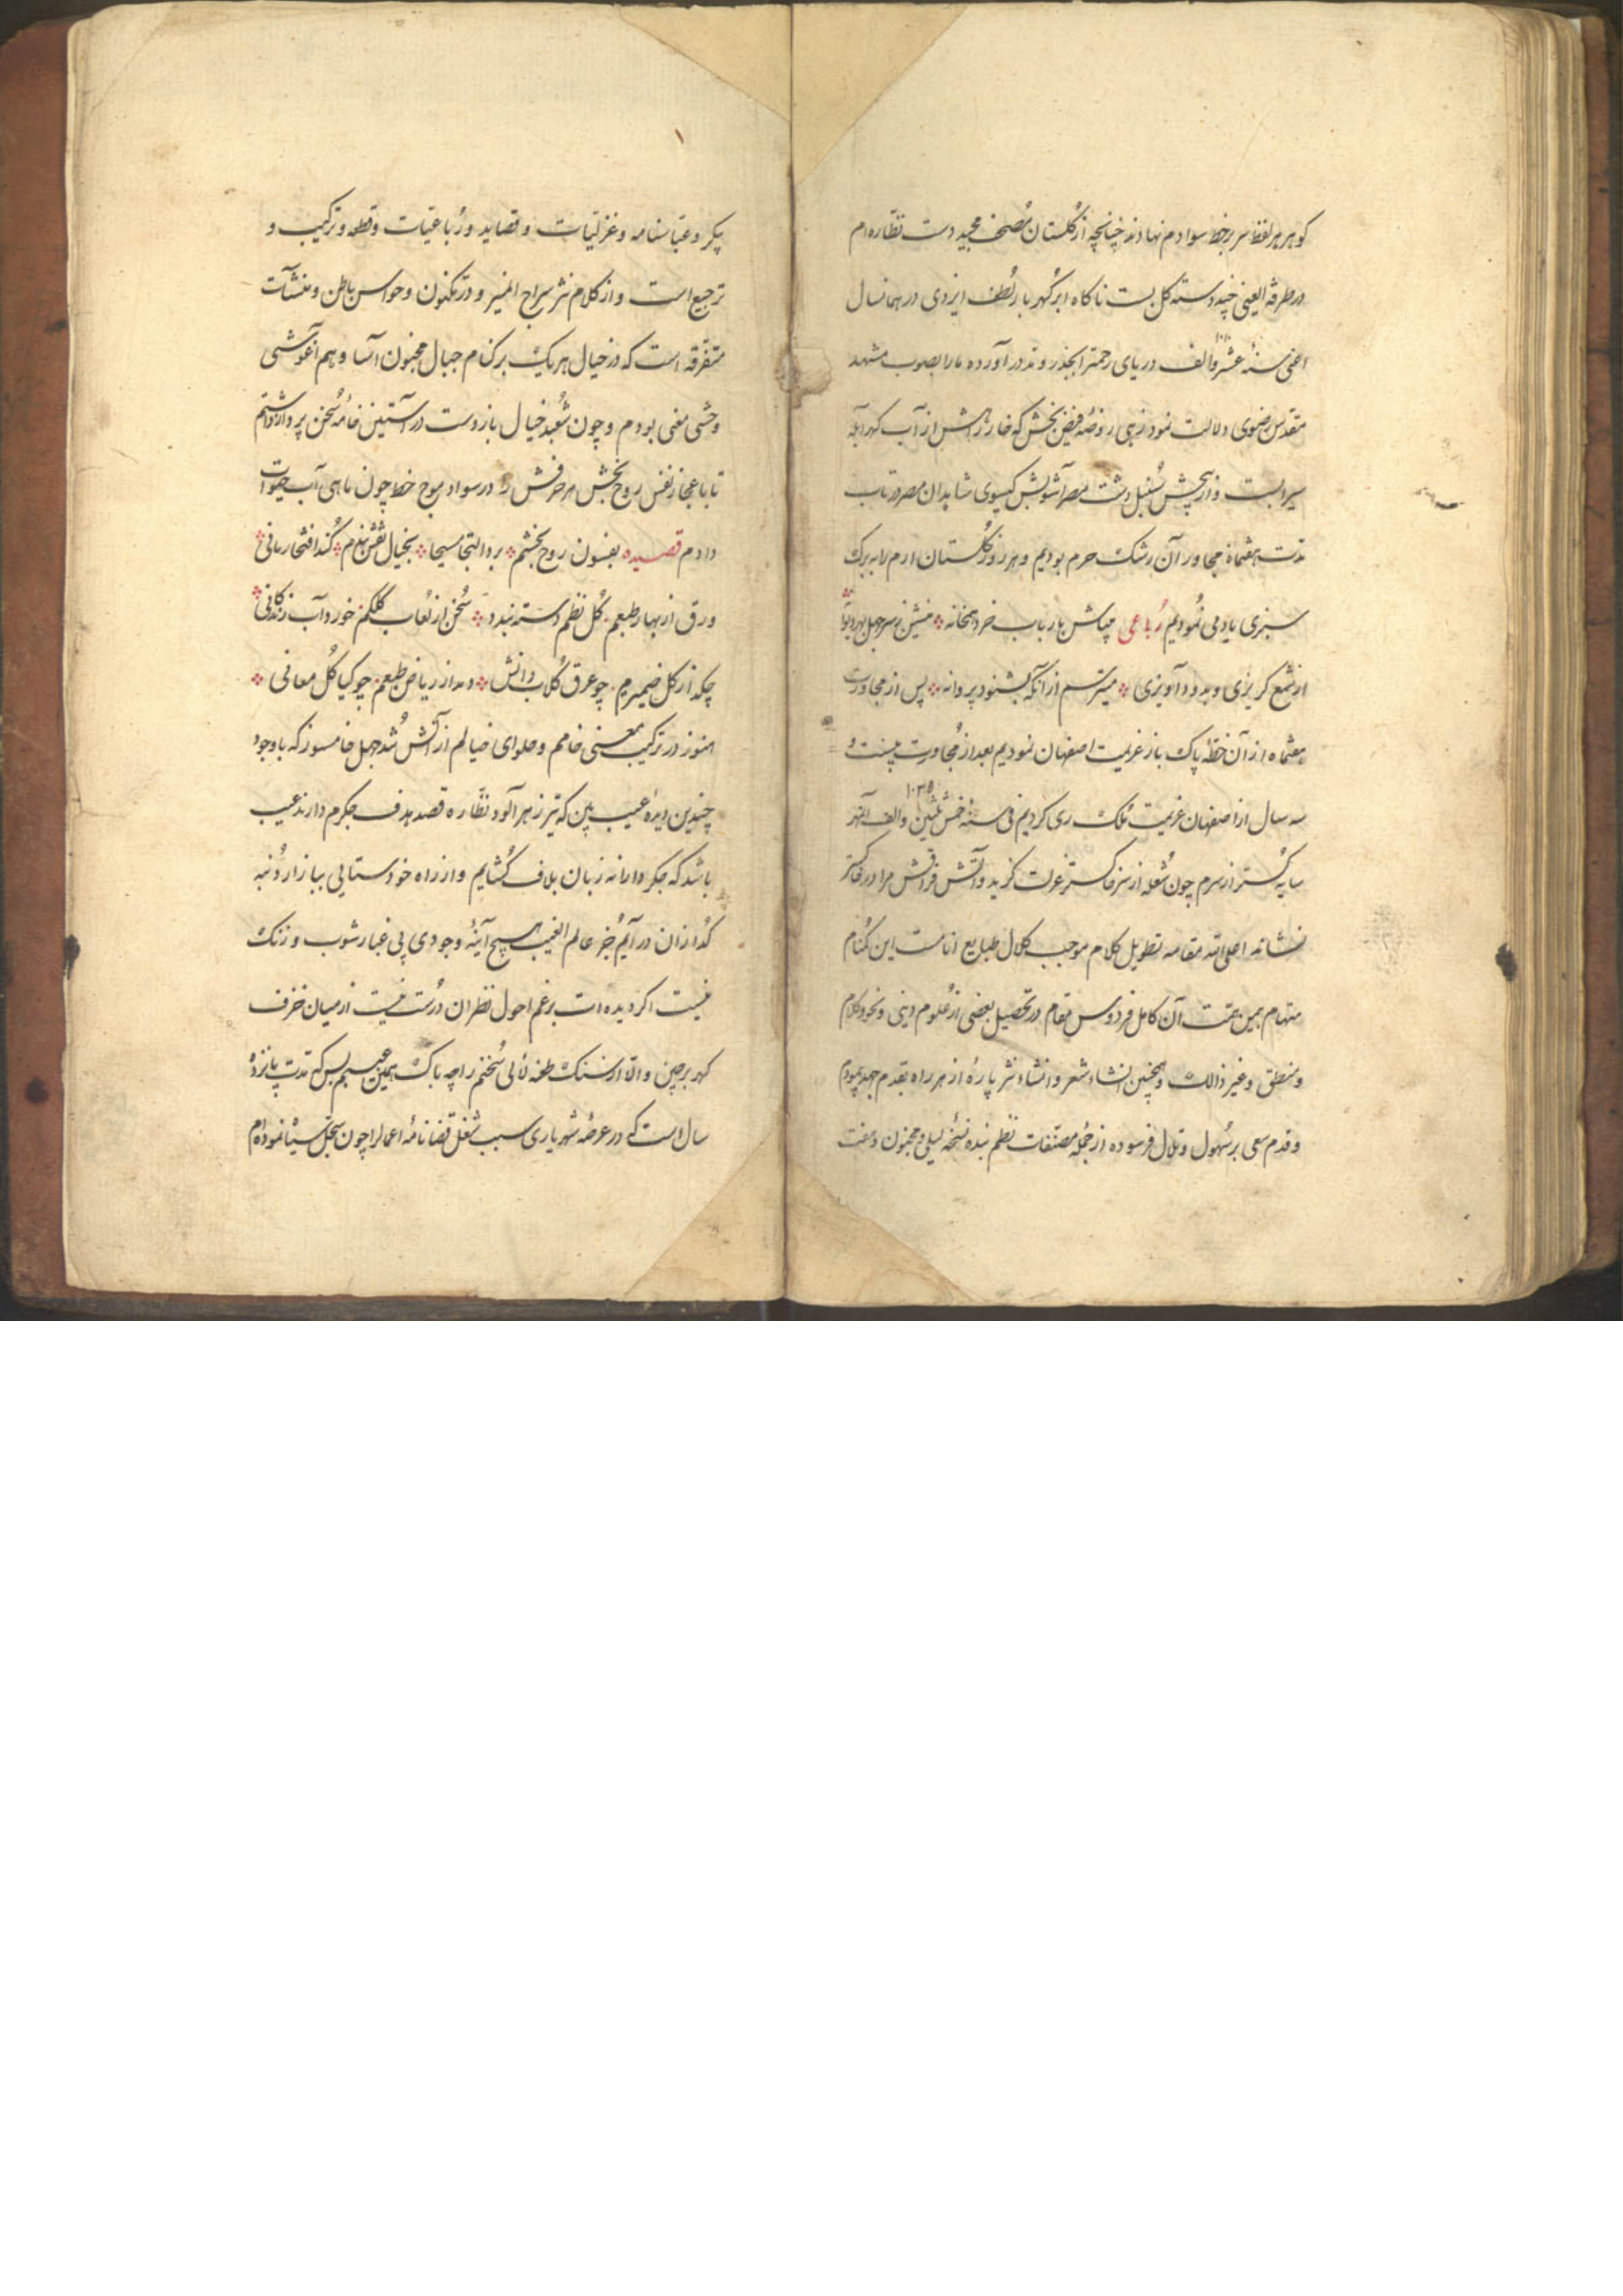 کوهر هر لفظ سر بر خط سوادم نهادند چنانچه از گلستان مصحف مجید دست نظاره‌ام
در طرفة العینی چند دسته کل بست ناکاه ابر گهربار لطف ایزدی در همانسال
اعنی سنهٔ عشر والف دریای رحمترا بجذر ومد در آورده مارا بصوب مشهد
مقدس رضوی دلالت نمود زهی روضهٔ فیض بخش که خار راهش از آب کهر آبله
سیرابست و از پیچش سنبل دشت کیسوی شاهدان مصر در تاب
مدت هفتماه مجاور آن رشک حرم بودیم و هر روز گلستان ارم لابه برک
سبزی یاد می نمودیم رباعی مباش با رباب خرد همخانه منشین
از شمع کریزی و بدود آویزی میترسم از آنکه بشنود پروانه پس از مجاورت
هفتماه از آن خطهٔ پاک باز عزیمت اصفهان نمودیم بعد از مجاورت بیست و
سه سال از اصفهان عزیمت ملک ری کردیم فی سنهٔ خمس ثلثین والف ۱۰۳۵
سایه گستر از سرم چون شعله از سر خاکستر عزلت کزید و آتش فراقش مرا در خاکستر
نشاند اعلی الله مقامه تطویل کلام موجب کلال طبایع انامست این گمنام
متهام بیمن همت آن کامل فردوس مقام در تحصیل بعضی از علوم دینی و نحو و کلام
و منطق و غیر ذالک و همچنین انشاء شعر و انشاء نثر پارهٔ از هر راه بقدم جهد پیمودم
و قدم سعی بر سهول و تلال فرسوده از جمله مصنفات نظم بنده نسخهٔ لیلی و مجنون و هفت
پیکر و عباسنامه و غزلیات و قصاید و رباعیات و قطعه و ترکیب و
ترجیع است و از کلام نثر سراج المنیر و در مکنون و حواس باطن و منشآت
متفرقه است که در خیال هر یک بر کنام جبال مجنون آسا و هم آغوش
وحشی معنی بودم و چون شعبدهٔ خیال باز دست در آستین خامهٔ سخن پرداز داشتم
تا با عجاز نفس روح بخش هر حرفش را در سواد موج خط چون ماهی آب حیوات
دادم قصیده بفسون روح بخشم برد التجا مسیحا بخیال نقش بندم کند افتخار مانی
ورق از بهار طبعم گل نظم دسته بندد سخن از لعاب کلکم خورد آب زندکانی
چکد از کل ضمیرم چو عرق گلاب دانش دمد از ریاض طبعم چو کیا کل معانی
هنوز در ترکیب معنی خامم و حلوای خیالم از آتش شد جهل خامسوز که باوجود
چندین دیدهٔ عیب بین که تیر زهرآلود نظاره قصد هدف جکرم دارند عیب
باشد که جکر دارانه زبان بلاف گشایم و از راه خودستایی ببازار دنبه
گدازان در آیم جز عالم الغیب هیچ آینهٔ وجودی بی غبار شوب و زنک
نیست اکر دیده ات برغم احول نظران درست نیست از میان خزف
کهر برچین و الا از سنک طعنه لآلی سخنم را چه باک همین عیبم بس که مدت پانزده
سال است که در عرضهٔ شهریاری سبب شغل قضا نامهٔ اعمال را چون سجل سیاه نموده‌ام